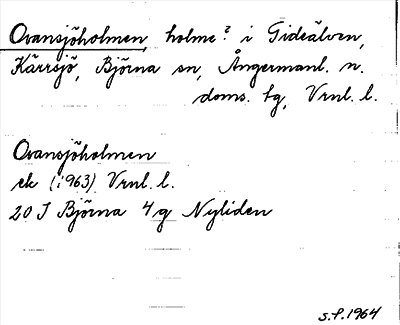 Ovansjöholmen, holme? i Gideälven,
Kärrsjö, Björna sn, Ångermanl. n.
doms. tg, Vrnl. l.
Ovansjöholmen
ek (1963) Vrnl. l.
20 J Björna 4 g Nyliden
S.P. 1964